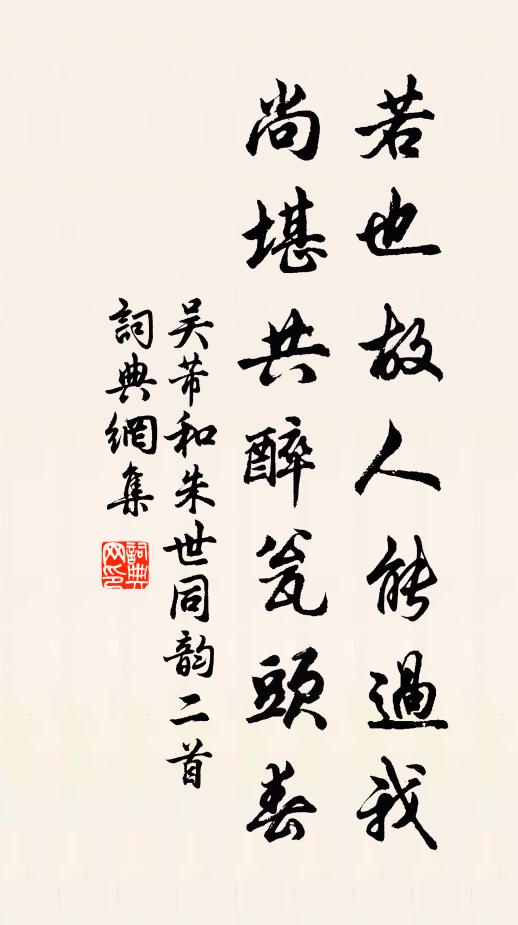 若也故人能過我
尚堪共醉瓮頭春
吴芾和朱世同韵二首
詞典網集
詞典网印